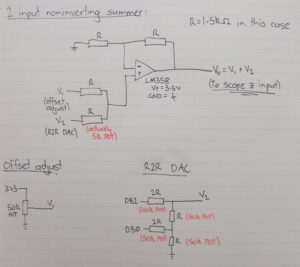 2 input noninverting summer:
R=1.5kΩ in this case
R
R
LM358
V+ = 3.3V
GND =
V₁
R
(offset adjust)
V₂
R
(R2R DAC)
(actually 5k pot)
V₀ = V₁ + V₂
(To scope z input)
Offset adjust
3V3
50k pot
V₁
R2R DAC
DB1
2R
V₂
(100k pot)
R (50k pot)
DB0
2R
(50k pot)
R (50k pot)